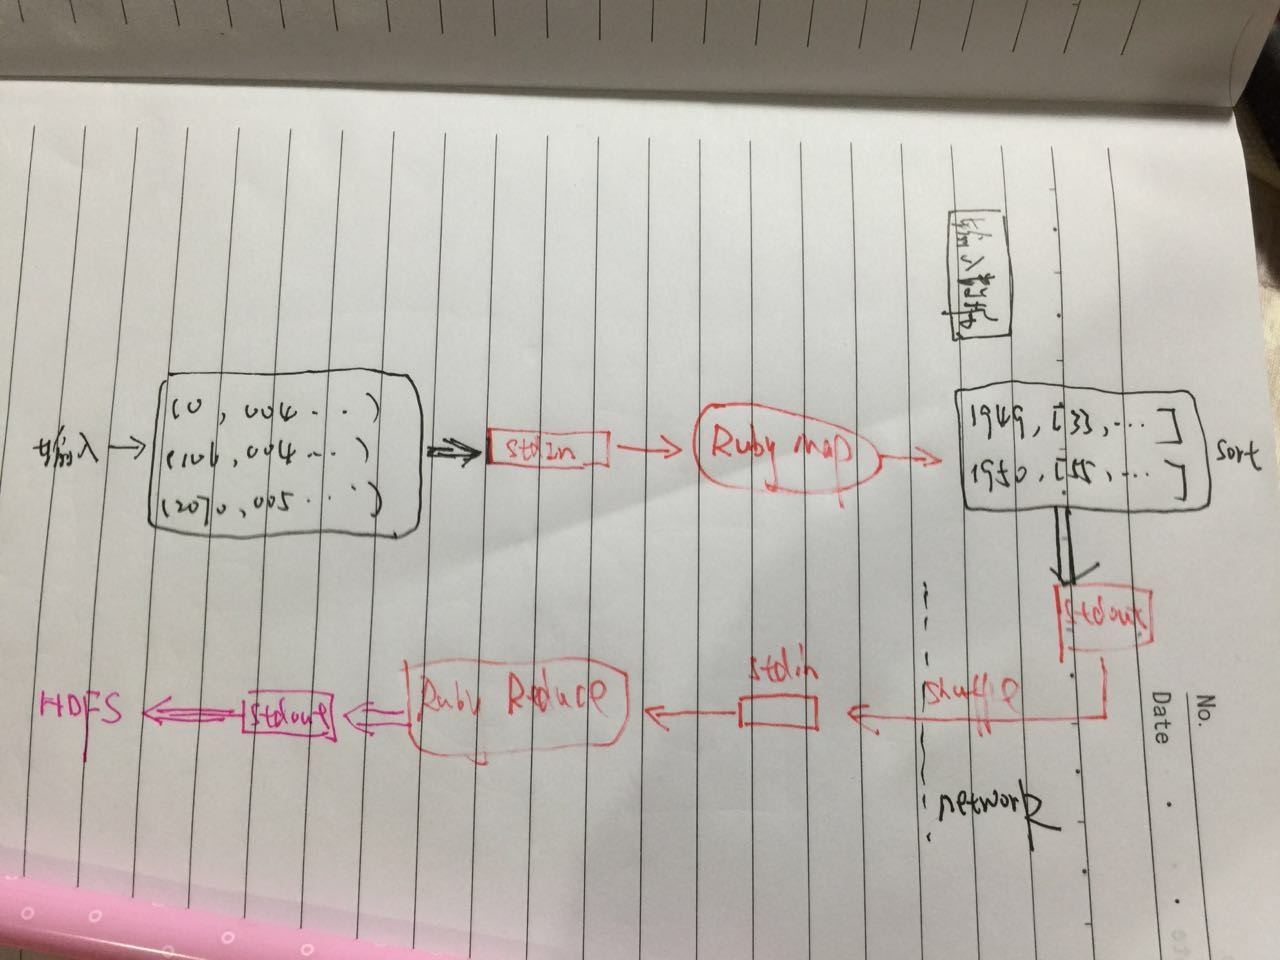 输入数据
输入
(0, 004 ...)
(106, 004 ...)
(2070, 005 ...)
stdin
Ruby map
1949, [33, ... ]
1950, [55, ... ]
sort
stdout
shuffle
network
stdin
Ruby Reduce
stdout
HDFS
No.
Date